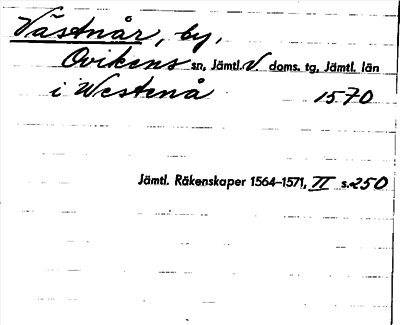 Västnår, by,
Ovikens sn, Jämtl. V. doms. tg, Jämtl. län
i Westenå 1570
Jämtl. Räkenskaper 1564–1571, II s. 250